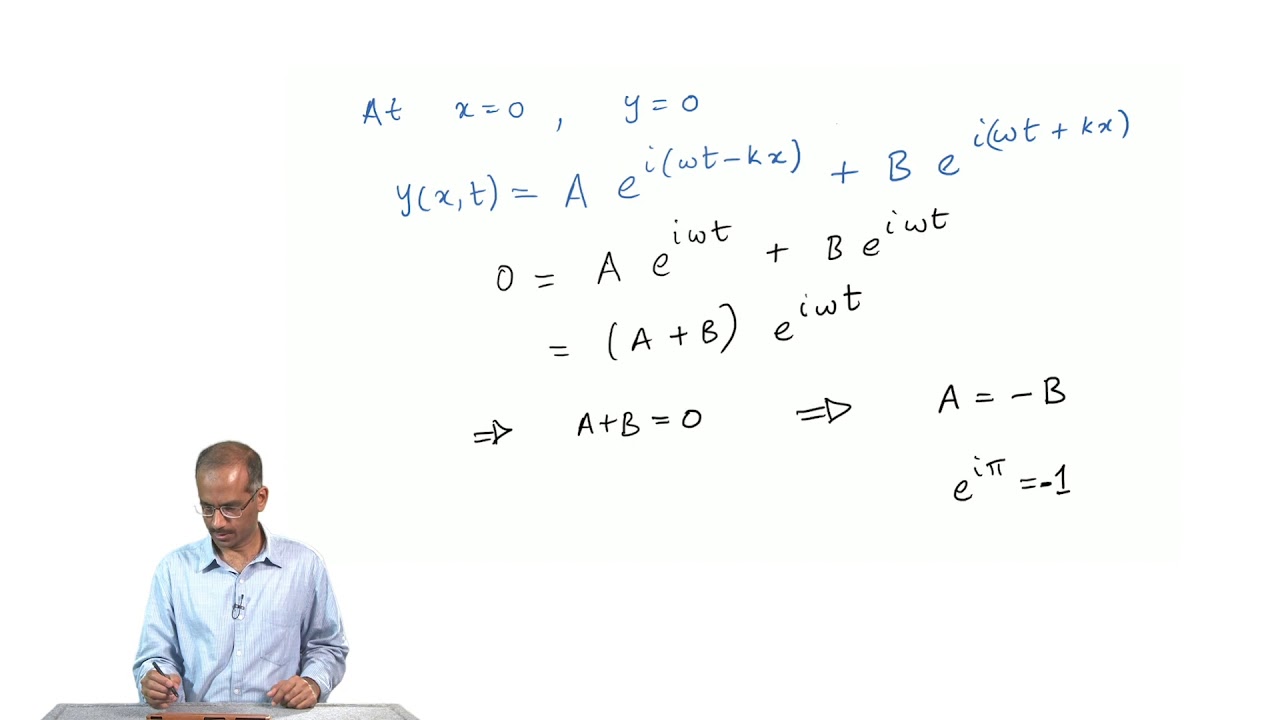 At x=0 , y=0
y(x,t) = A e^{i(ωt-kx)} + B e^{i(ωt+kx)}
0 = A e^{iωt} + B e^{iωt}
= (A+B) e^{iωt}
⇒ A+B=0 ⇒ A = -B
e^{iπ} = -1